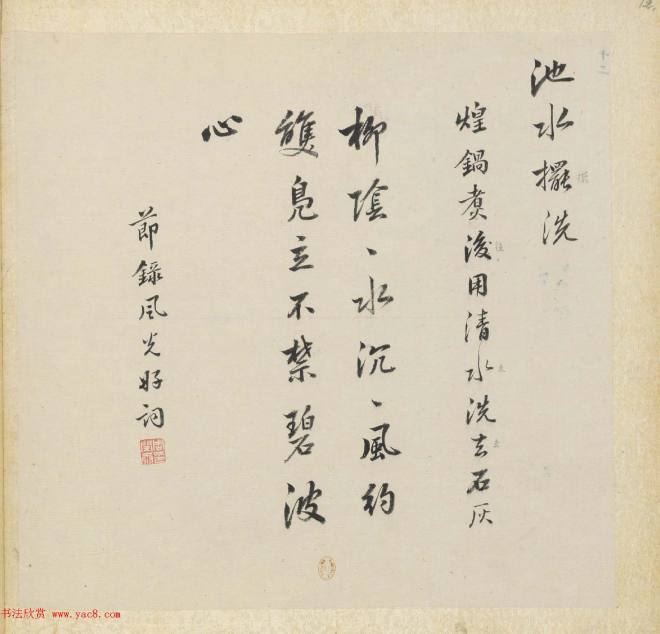 十二
池水擺洗
煌鍋煑後用清水洗去石灰
柳陰、水沉、風約
雙鳧立不禁碧波
心
節錄風光好詞
书法欣赏 www.yac8.com